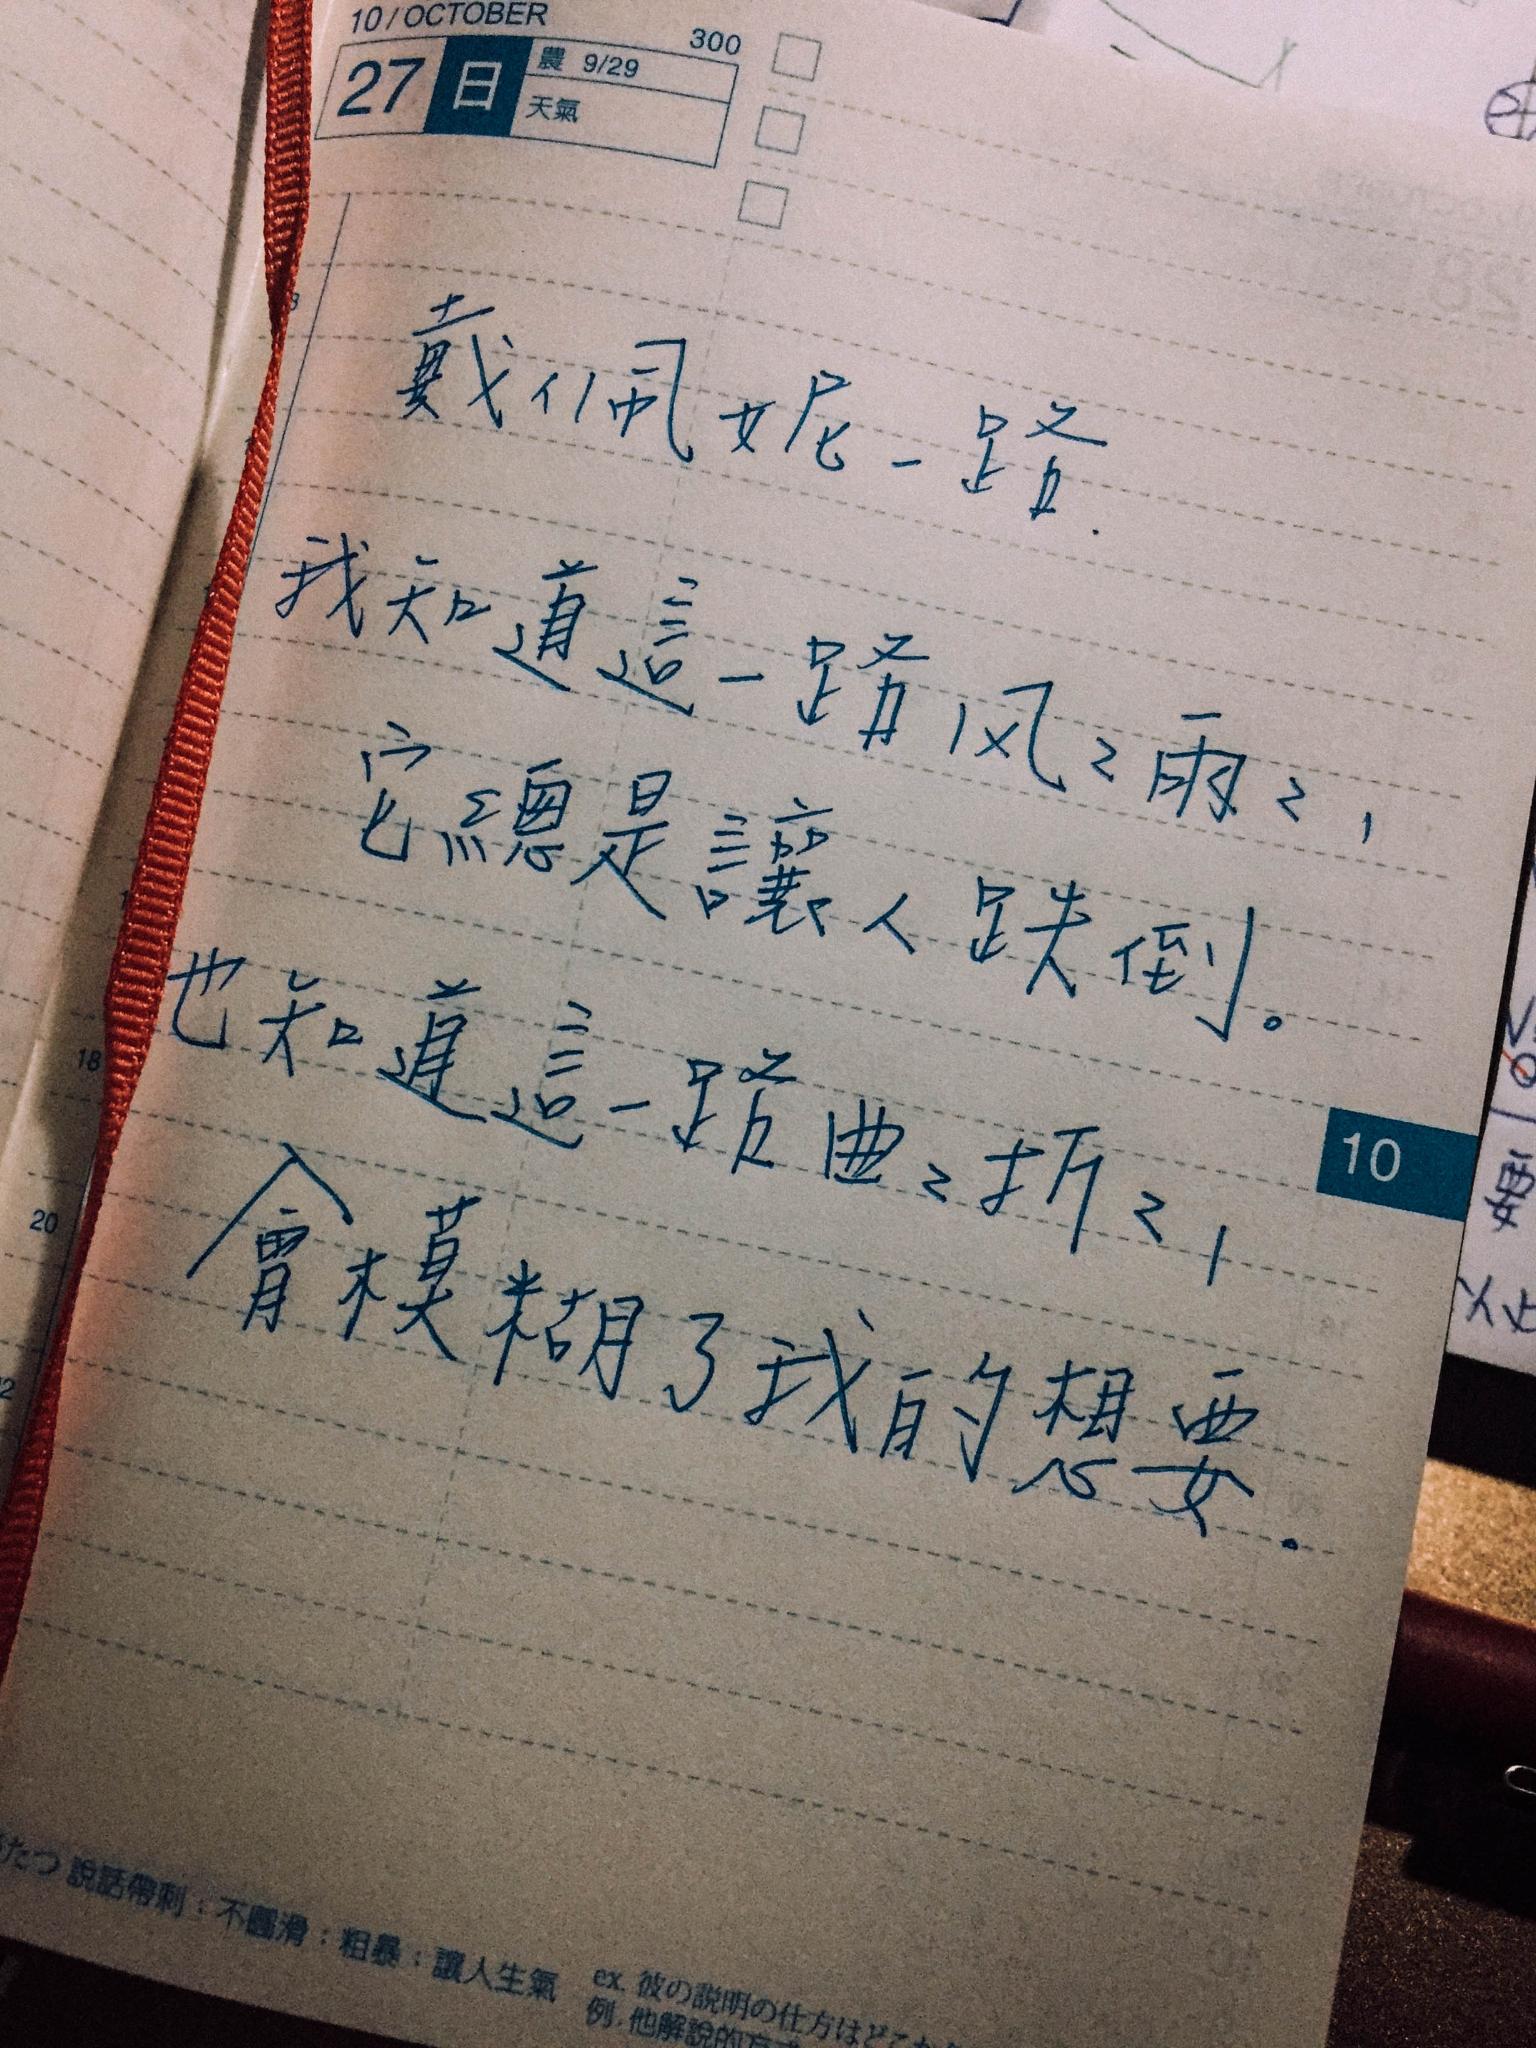 10/OCTOBER
300
27 日 農 9/29
天氣
戴佩妮一路.
我知道這一路风々雨々,
它總是讓人跌倒。
也知道這一路曲々折々,
10
會模糊了我的想要.
18
20
たつ 說話帶刺:不圓滑:粗暴:讓人生氣
ex. 彼の説明の仕方はどこか
例. 他解說的方式